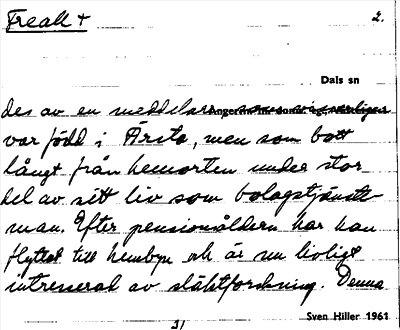 Freall + 2.
Dals sn
des av en meddelare som visserligen
var född i Ärsta, men som bott
långt från hemorten under stor-
del av sitt liv som bolagstjänste-
man. Efter pensionåldern har han
flyttat till hembyn och är nu livligt
intresserad av släktforskning. Denna
Sven Hiller 1961